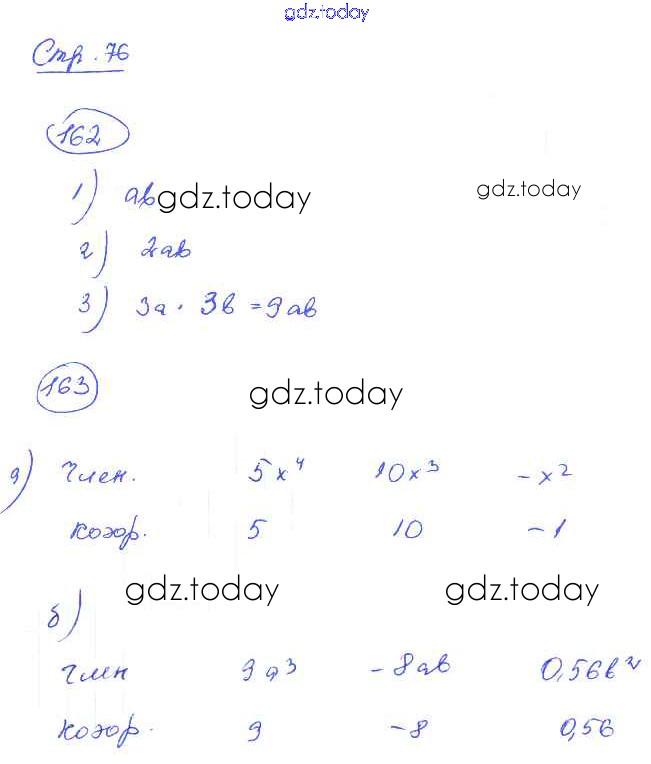 gdz.today
Стр. 76
162
1) ab gdz.today gdz.today
2) 2ab
3) 3a · 3b = 9ab
163 gdz.today
а) Член. 5x⁴ 10x³ -x²
Коэф. 5 10 -1
gdz.today gdz.today
б)
Член 9a³ -8ab 0,56b²
Коэф. 9 -8 0,56